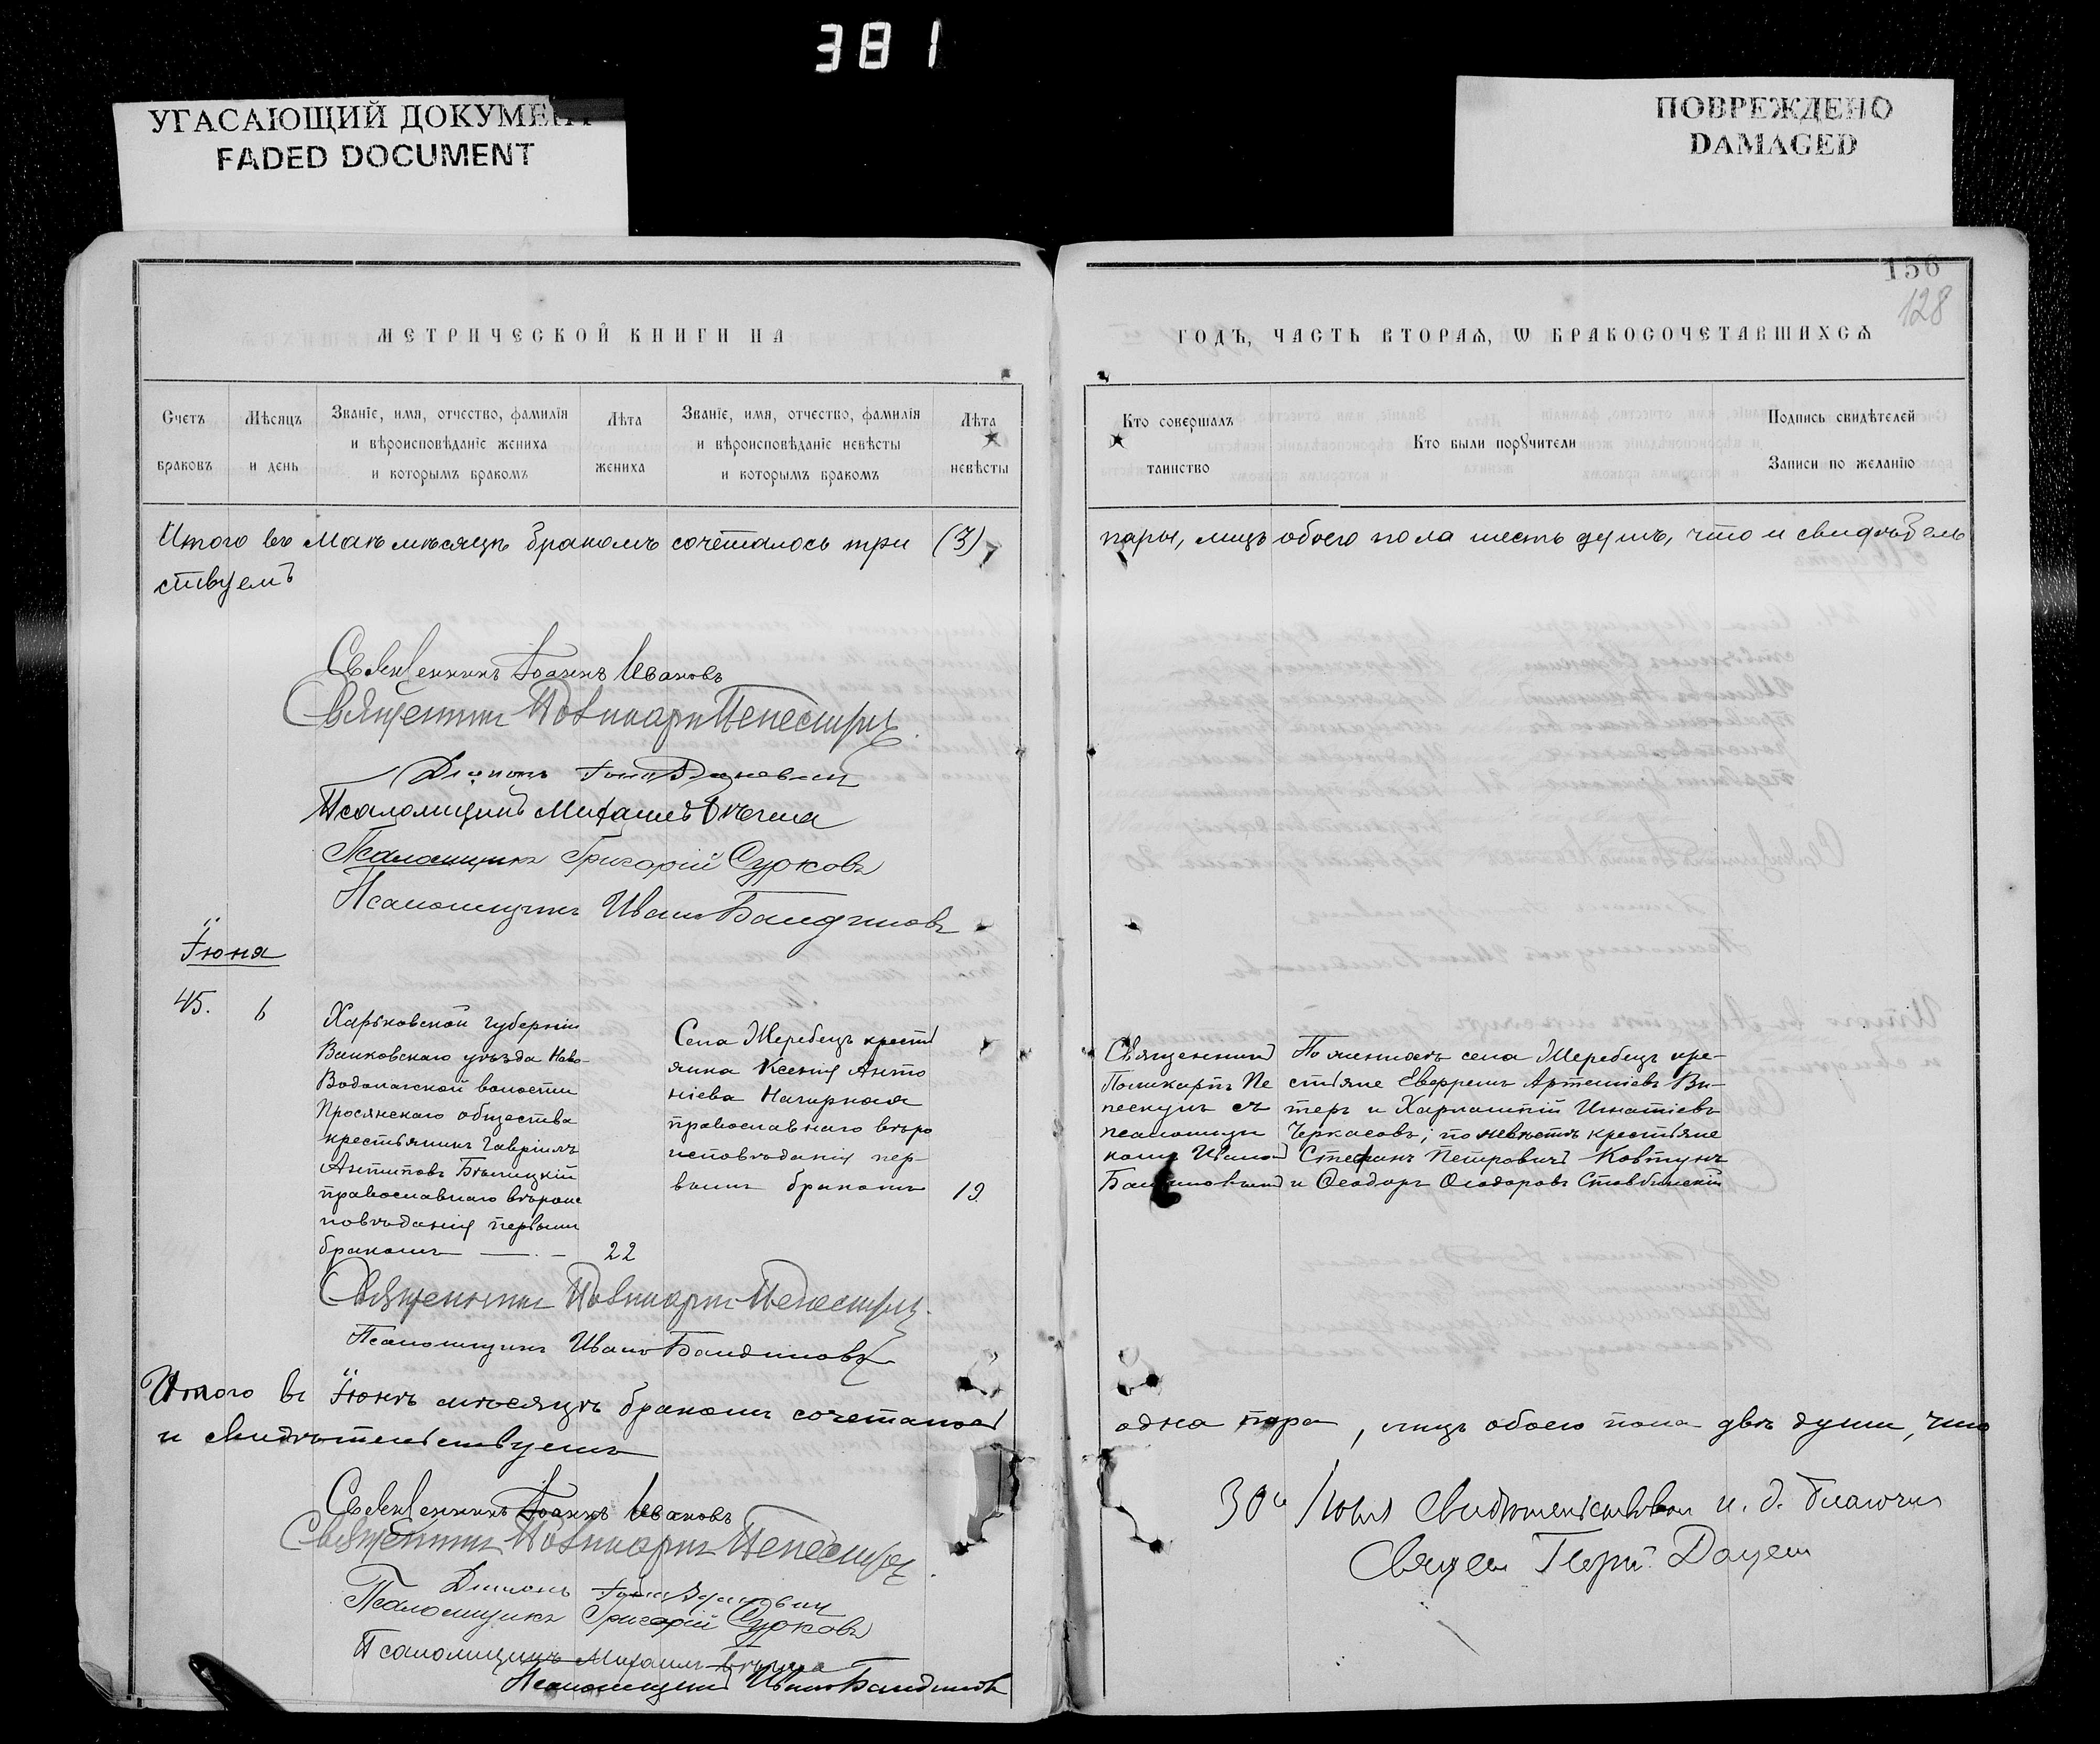 381
УГАСАЮЩИЙ ДОКУМЕНТ
FADED DOCUMENT
ПОВРЕЖДЕНО
DAMAGED
156
128
МЕТРИЧЕСКОЙ КНИГИ НА
ГОДЪ, ЧАСТЬ ВТОРАЯ, Ѡ БРАКОСОЧЕТАВШИХСЯ
Счетъ
браковъ
Мѣсяцъ
и день
Званіе, имя, отчество, фамилія
и вѣроисповѣданіе жениха
и которымъ бракомъ
Лѣта
жениха
Званіе, имя, отчество, фамилія
и вѣроисповѣданіе невѣсты
и которымъ бракомъ
Лѣта
невѣсты
Кто совершалъ
таинство
Кто были порꙋчители
Подпись свидѣтелей
Записи по желанію
Итого въ Маѣ мѣсяцѣ бракомъ сочеталось три (3)
пары, лицъ обоего пола шесть душъ, что и свидѣтель
ствуемъ
Священникъ Іоаннъ Ивановъ
Священникъ Поликарпъ
Діаконъ
Псаломщикъ Михаилъ
Псаломщикъ Григорій Сурковъ
Псаломщикъ Иванъ
Іюня
45. 6
Харьковской губерніи
Валковскаго уѣзда Ново-
Водолагской волости
Просянскаго общества
крестьянинъ Гавріилъ
Антиповъ Бѣлицкій
православнаго вѣроис
повѣданія первымъ
бракомъ — . — 22
Села Жеребецъ кресть
янка Ксенія Анто
ніева Нагирная
православнаго вѣро
исповѣданія пер-
вымъ бракомъ 19.
Священникъ
Поликарпъ Пе
съ
псаломщи
комъ Иваномъ
По женихѣ села Жеребецъ кре-
стьяне Евфремъ Артеміевъ Ви-
теръ и Харлампій Игнатіевъ
Черкасовъ; по невѣстѣ крестьяне
Стефанъ Петровичъ Ковтунъ
и Ѳеодоръ Ѳеодоровъ
Священникъ Поликарпъ
Псаломщикъ Иванъ
Итого въ Іюнѣ мѣсяцѣ бракомъ сочеталось
одна пара, лицъ обоего пола двѣ души, что
и свидѣтельствуемъ
Священникъ Іоаннъ Ивановъ
Священникъ Поликарпъ
Діаконъ
Псаломщикъ Григорій Сурковъ
Псаломщикъ Михаилъ
Псаломщикъ Иванъ
30 Іюня свидѣтельствовалъ и. д.